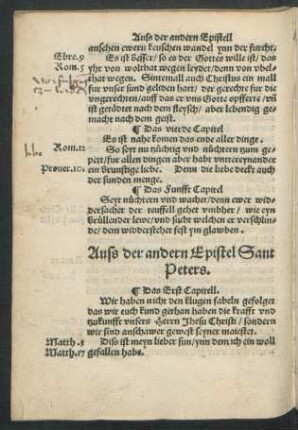 Auss der andern Epistell
anschen ewern keuschen wandel ynn der furcht.
Ebre.9 Es ist besser / so es der Gottes wille ist / das
Rom.5 yhr von wolthat wegen leydet / denn von vbel-
that wegen. Sintemall auch Christus ein mall
fur vnser sund geliden hatt / der gerechte fur die
vngerechten / auff das er vns Gotte opfferte / vñ
ist getödtet nach dem fleysch / aber lebendig ge-
macht nach dem geist.
¶ Das vierde Capitel
Es ist nahe komen das ende aller dinge.
Rom.12 So seyt nu nüchtrig vnd nüchtern zum ge-
pert / fur allen dingen aber habt vntereynander
Prouer.10. ein brunstige liebe. Denn die liebe deckt auch
der sunden menge.
¶ Das Funfft Capitel
Seyt nüchtern vnd wachet / denn ewer wid-
dersacher der teuffel gehet vmbher / wie eyn
brüllender lewe / vnd sucht welchen er verschlin-
de / dem widderstehet fest ym glawben.
Auss der andern Epistel Sant
Peters.
¶ Das Erst Capitell.
Wir haben nicht den klugen fabeln gefolget
das wir euch kund gethan haben die krafft vnd
zukunfft vnsers Herrn Jhesu Christi / sondern
wir sind anschawer gewest seyner maiestet.
Matth.3 Diss ist meyn lieber sun / ynn dem ich ein woll
Matth.17 gefallen habe.